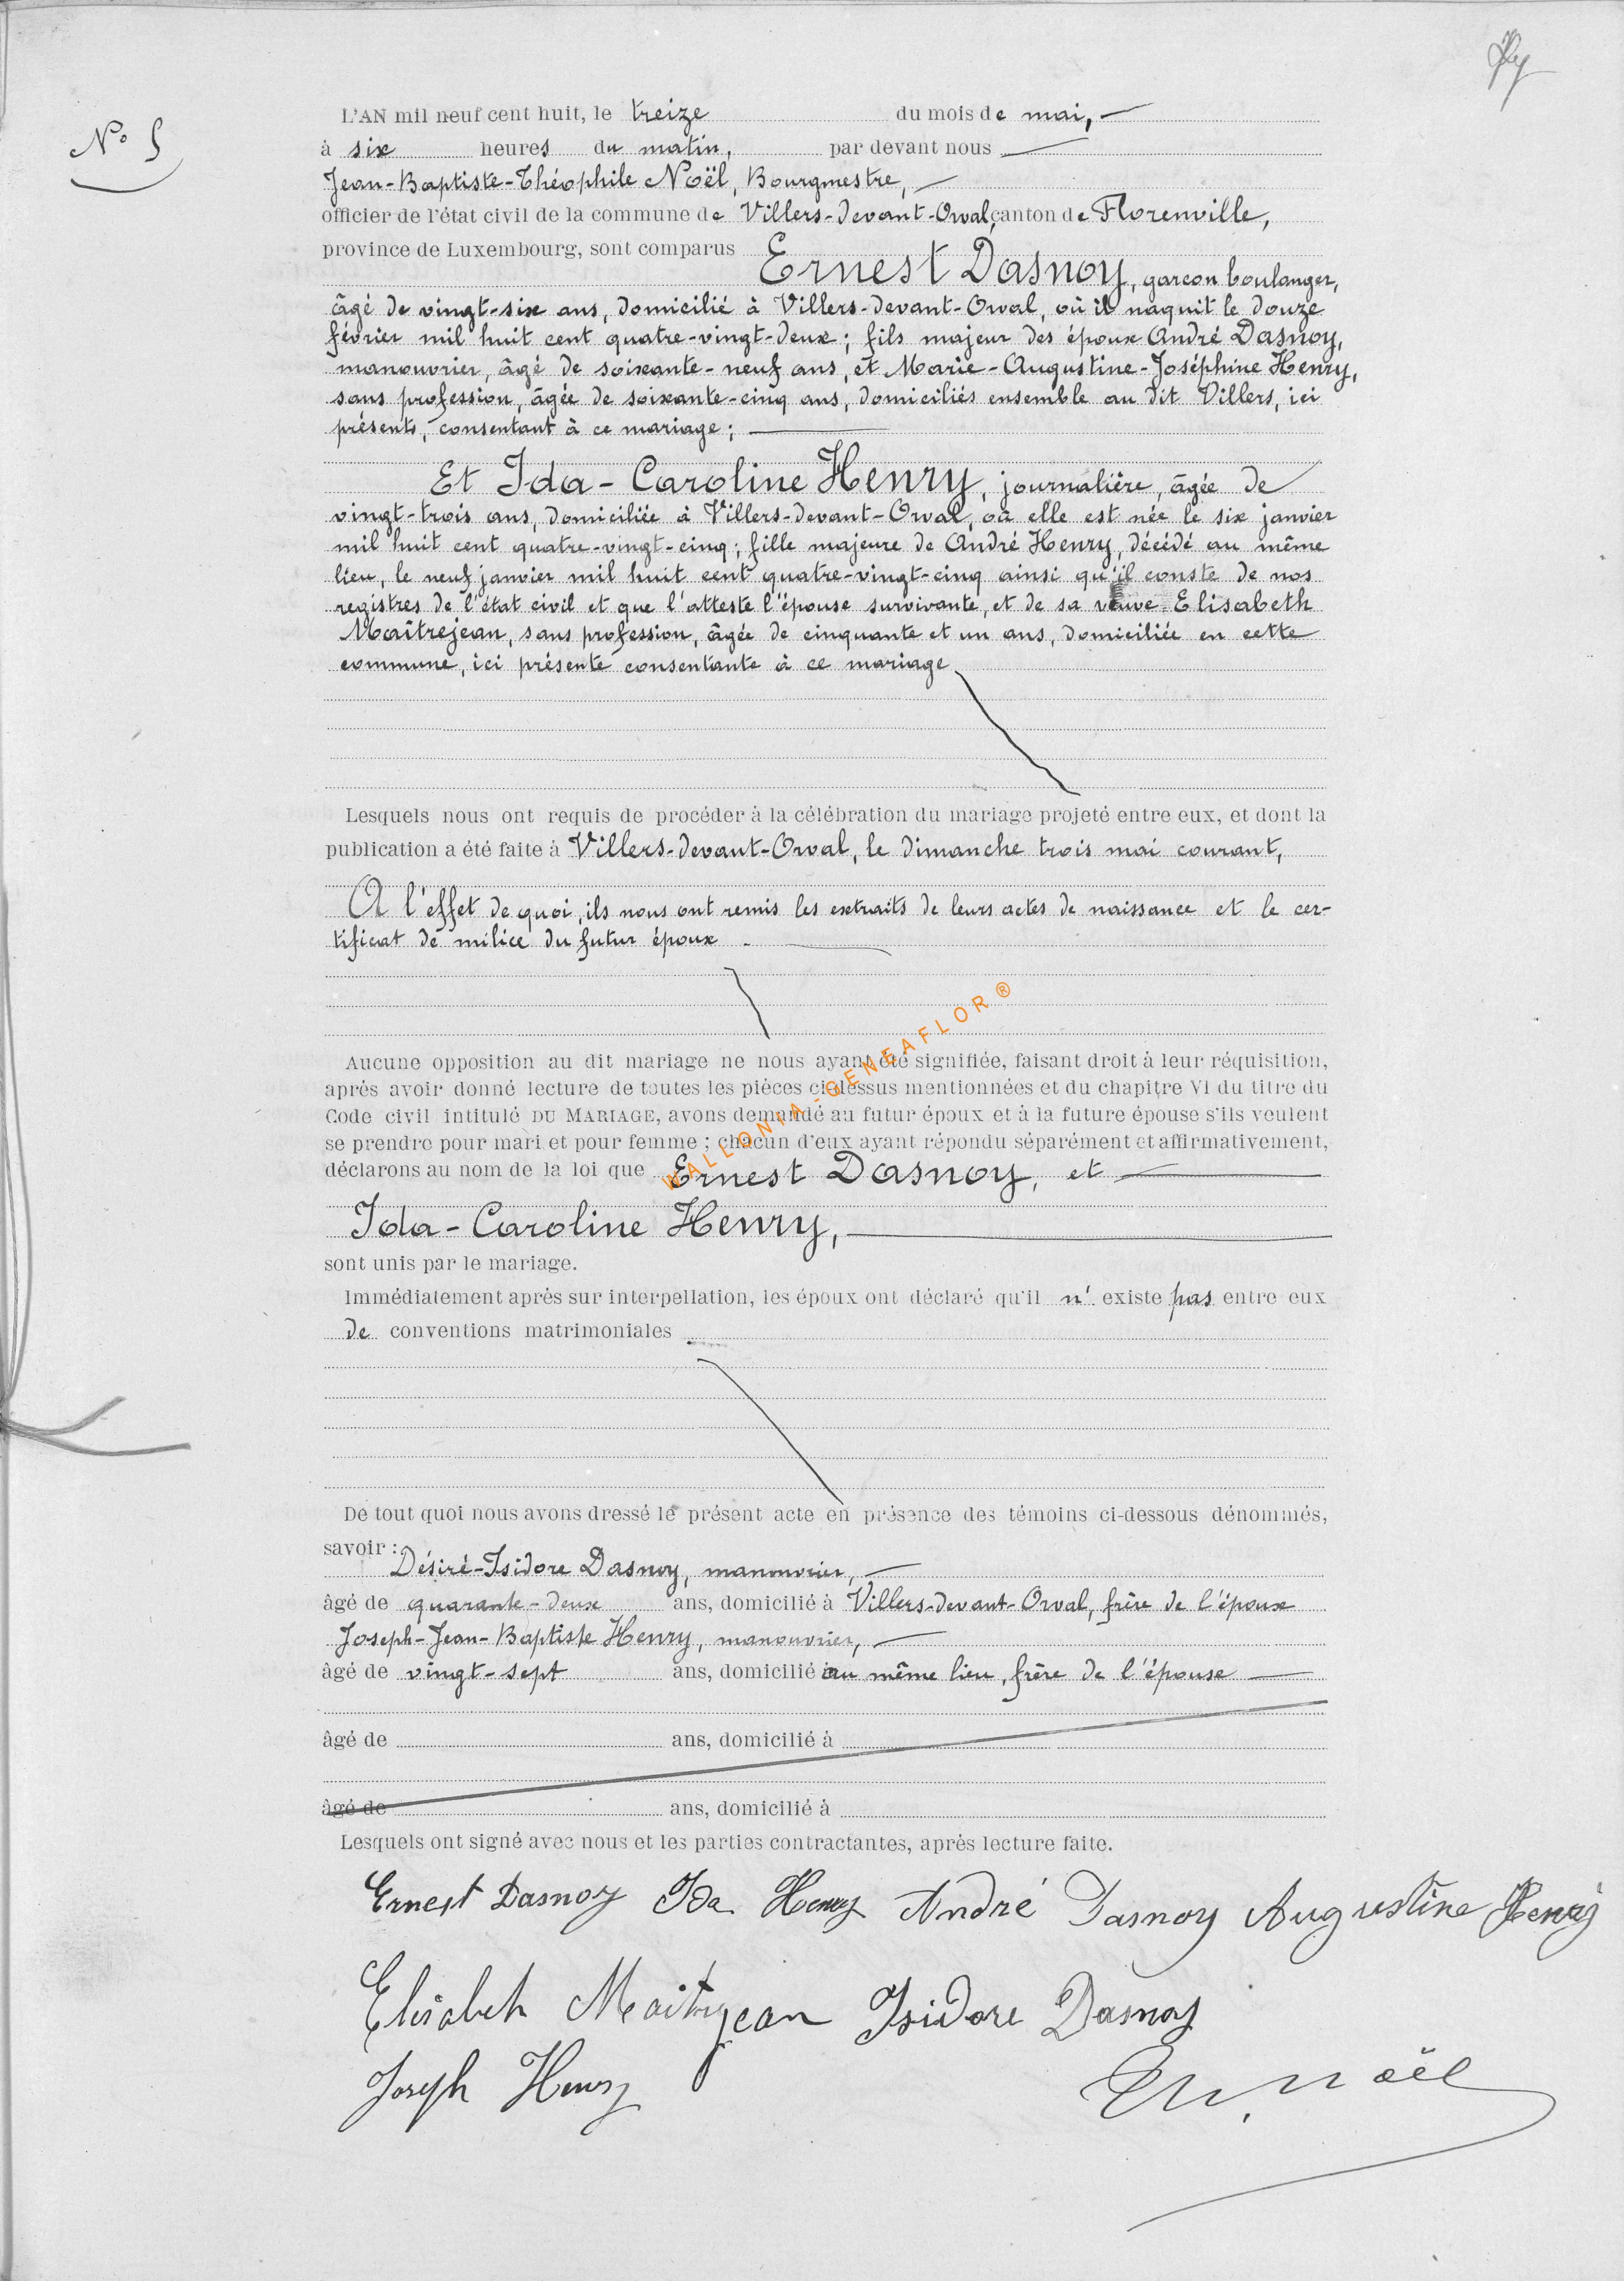 N° 5
L'AN mil neuf cent huit, le treize du mois de mai,
à six heures du matin, par devant nous
Jean-Baptiste-Théophile Noël, Bourgmestre,
officier de l'état civil de la commune de Villers-devant-Orval, canton de Florenville,
province de Luxembourg, sont comparus Ernest Dasnoy, garçon boulanger,
âgé de vingt-six ans, domicilié à Villers-devant-Orval, où il naquit le douze
février mil huit cent quatre-vingt-deux; fils majeur des époux André Dasnoy,
manouvrier, âgé de soixante-neuf ans, et Marie-Augustine-Joséphine Henry,
sans profession, âgée de soixante-cinq ans, domiciliés ensemble au dit Villers, ici
présents, consentant à ce mariage;
Et Ida-Caroline Henry, journalière, âgée de
vingt-trois ans, domiciliée à Villers-devant-Orval, où elle est née le six janvier
mil huit cent quatre-vingt-cinq; fille majeure de André Henry, décédé au même
lieu, le neuf janvier mil huit cent quatre-vingt-cinq ainsi qu'il conste de nos
registres de l'état civil et que l'atteste l'épouse survivante, et de sa veuve Elisabeth
Maîtrejean, sans profession, âgée de cinquante et un ans, domiciliée en cette
commune, ici présente consentante à ce mariage
Lesquels nous ont requis de procéder à la célébration du mariage projeté entre eux, et dont la
publication a été faite à Villers-devant-Orval, le dimanche trois mai courant,
A l'effet de quoi, ils nous ont remis les extraits de leurs actes de naissance et le cer-
tificat de milice du futur époux.
Aucune opposition au dit mariage ne nous ayant été signifiée, faisant droit à leur réquisition,
après avoir donné lecture de toutes les pièces ci-dessus mentionnées et du chapitre VI du titre du
Code civil intitulé DU MARIAGE, avons demandé au futur époux et à la future épouse s'ils veulent
se prendre pour mari et pour femme; chacun d'eux ayant répondu séparément et affirmativement,
déclarons au nom de la loi que Ernest Dasnoy, et
Ida-Caroline Henry,
sont unis par le mariage.
Immédiatement après sur interpellation, les époux ont déclaré qu'il n'existe pas entre eux
de conventions matrimoniales
De tout quoi nous avons dressé le présent acte en présence des témoins ci-dessous dénommés,
savoir:
Désiré-Isidore Dasnoy, manouvrier,
âgé de quarante-deux ans, domicilié à Villers-devant-Orval, frère de l'époux
Joseph-Jean-Baptiste Henry, manouvrier,
âgé de vingt-sept ans, domicilié au même lieu, frère de l'épouse
âgé de ans, domicilié à
âgé de ans, domicilié à
Lesquels ont signé avec nous et les parties contractantes, après lecture faite.
Ernest Dasnoy Ida Henry André Dasnoy Augustine Henry
Elisabeth Maitrejean Isidore Dasnoy
Joseph Henry Th. Noël
WALLONIA-GENEAFLOR®